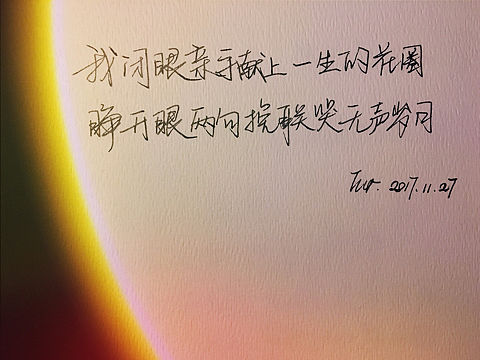 我闭眼亲手献上一生的花圈
睁开眼两句挽联哭无声岁月
2017.11.27